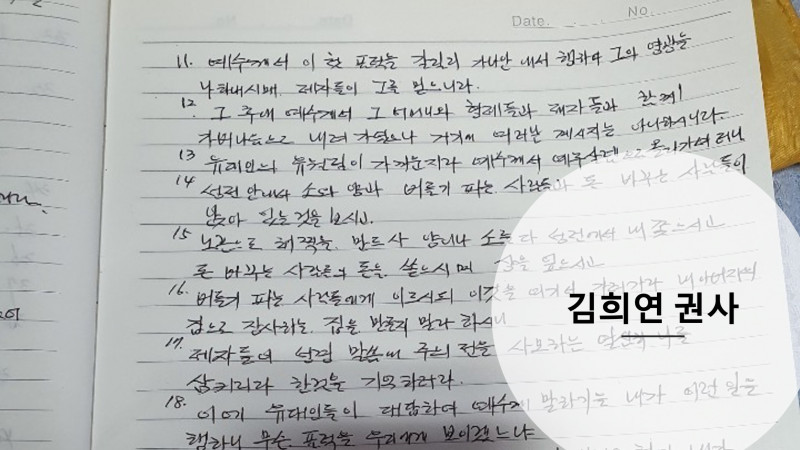 Date. No.
11. 예수께서 이 첫 표적을 갈릴리 가나안 에서 행하여 그의 영광을
나타내시매 제자들이 그를 믿으니라.
12. 그 후에 예수께서 그 어머니와 형제들과 제자들과 함께
가버나움으로 내려 가셨으나 거기에 여러날 계시지는 아니하시니라.
13 유대인의 유월절이 가까운지라 예수께서 예루살렘으로 올라가셨더니
14 성전 안에서 소와 양과 비둘기 파는 사람들과 돈 바꾸는 사람들이
앉아 있는것을 보시고
15 노끈으로 채찍을 만드사 양이나 소를 다 성전에서 내 쫓으시고
돈 바꾸는 사람들의 돈을 쏟으시며 상을 엎으시고
16. 비둘기 파는 사람들에게 이르시되 이것을 여기서 가져가라 내 아버지의
집으로 장사하는 집을 만들지 말라 하시니
17. 제자들이 성경 말씀에 주의 전을 사모하는 열심이 나를
삼키리라 한것을 기억하더라.
18. 이에 유대인들이 대답하여 예수께 말하기를 네가 이런 일을
행하니 무슨 표적을 우리에게 보이겠느냐
김희연 권사